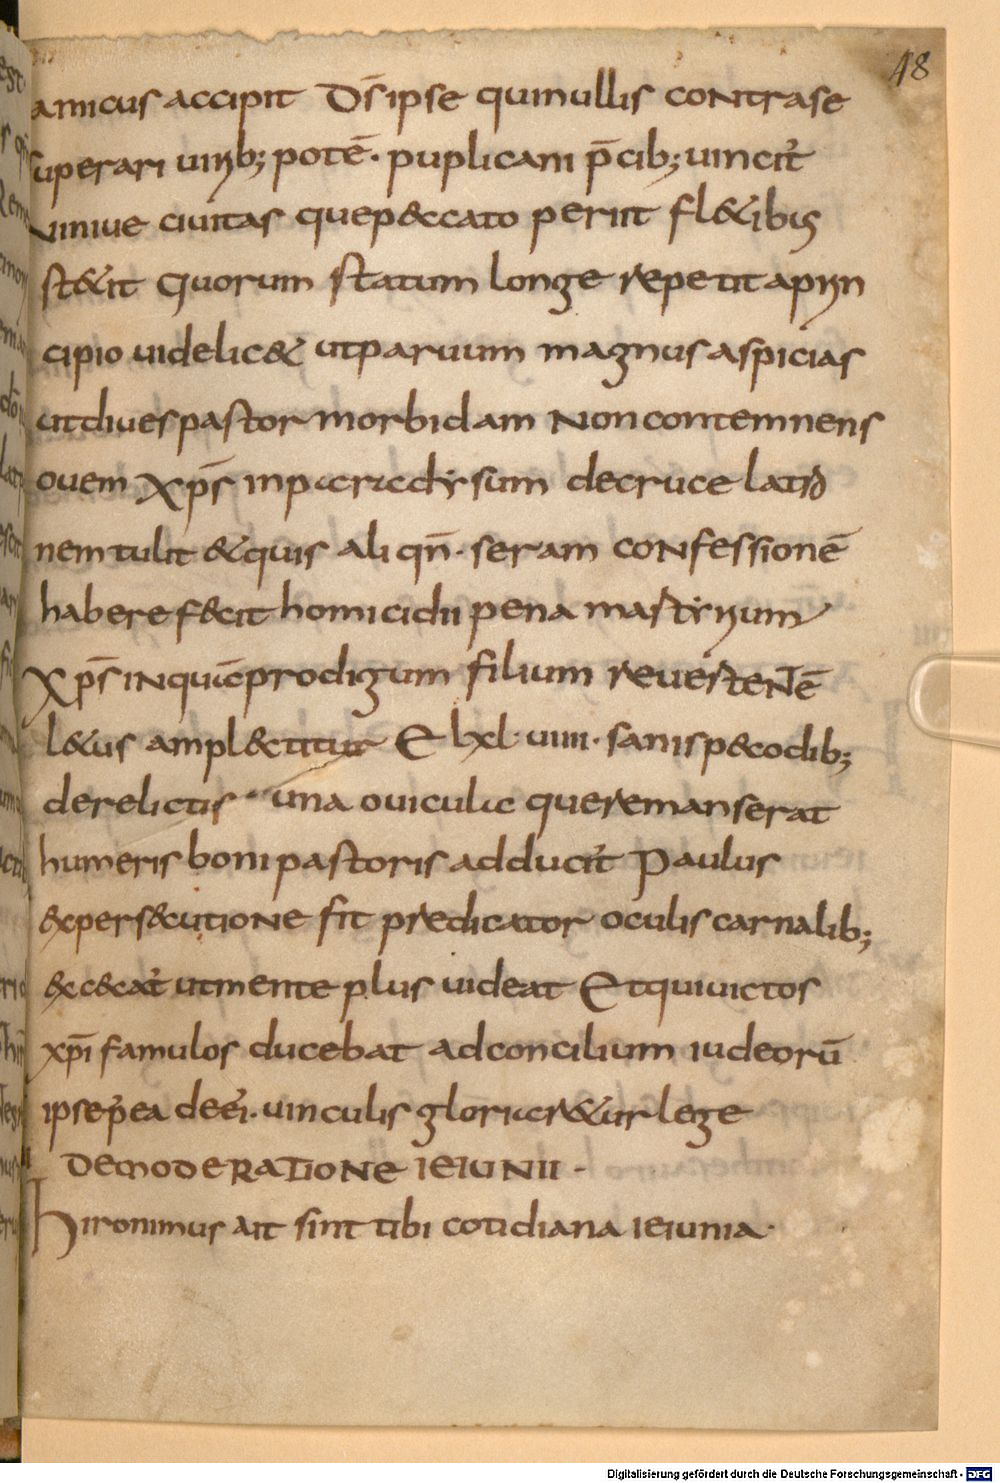 48
amicus accipit D̅s ipse qui nullis contra se
superari uirib; potē. puplicani p̄cib; uincit
niniue ciuitas que p&ccato periit fl&ibus
st&it Quorum statum longe repetit a prin
cipio uidelic& ut paruum magnus aspicias
ut diues pastor morbidam non contemnens
ouem Xp̄s in paradysum de cruce latro
nem tulit & quis aliqn̄. seram confessionē
habere f&cit homicidii pena martyrium
Xp̄s inquiē prodigum filium reuertentē
l&us ampl&titur Et lxl uiiii. sanis p&codib;
derelictis una ouicula que remanserat
humeris boni pastoris adducit Paulus
&x pers&cutione fit predicator oculis carnalib;
&xc&cat ut mente plus uideat Et qui uictos
xp̄i famulos ducebat ad concilium iudeorū
ipse p̄ea de ei. uinculis gloriar&ur lege
DE MODERATIONE IEIUNII.
Hironimus ait sint tibi cotidiana ieiunia.
Digitalisierung gefördert durch die Deutsche Forschungsgemeinschaft - DFG